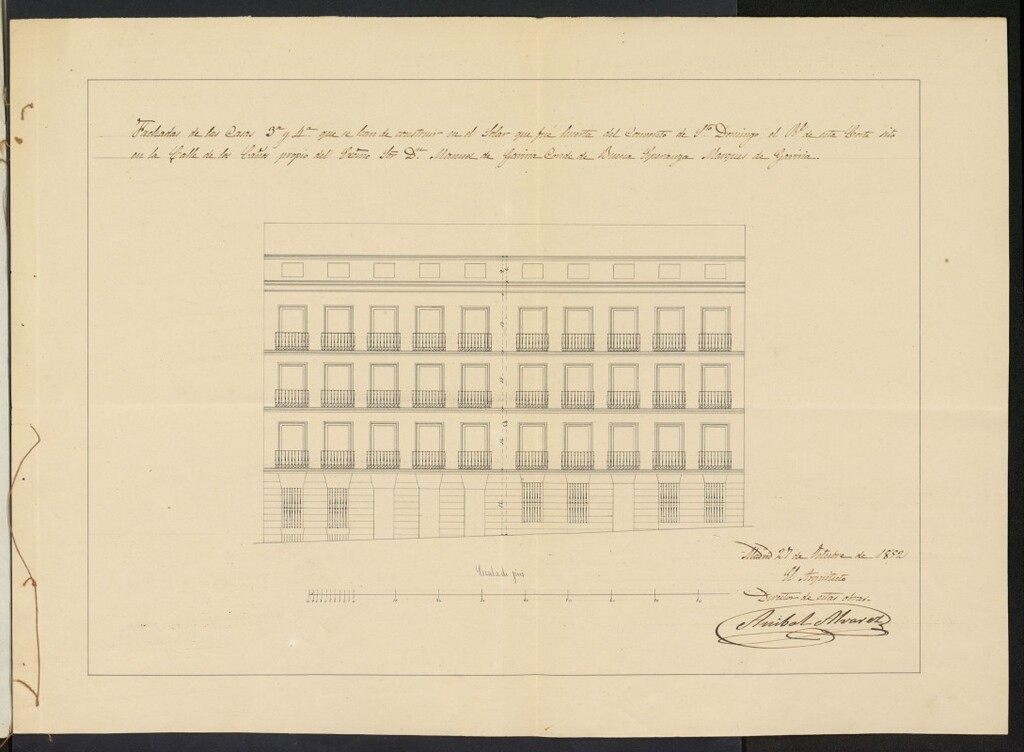 Fachadas de las Casas 3ª y 4ª que se han de construir en el Solar que fue huerta del Convento de Sto Domingo el Rl de esta Corte sito
en la Calle de los Caños propio del Exmo Sor Dn Manuel de Gaviria Conde de Buena Esperanza Marques de Gaviria.
Escala de pies
Madrid 27 de Octubre de 1852
El Arquitecto
Director de estas obras.
Anibal Alvarez